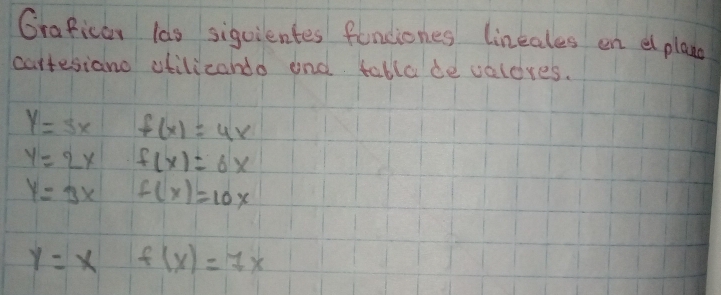 Graficar las siguientes funciones lineales en el plano
cartesiano utilizando una tabla de valores.
y = 5x f(x) = 4x
y = 2x f(x) = 6x
y = 3x f(x) = 10x
y = x f(x) = 7x